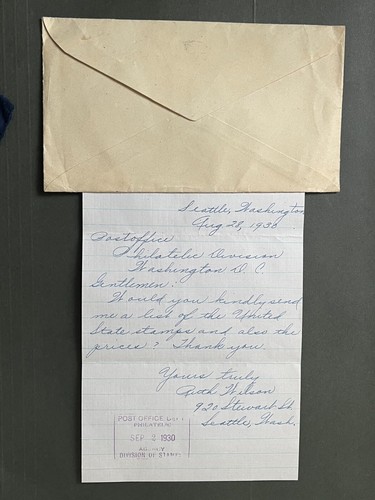 Seattle, Washington
Aug 28, 1930
Postoffice
Philatelic Division
Washington D. C
Gentlemen:
Would you kindly send
me a list of the United
State stamps and also the
prices? Thank you
Yours truly
Ruth Wilson
920 Stewart St
Seattle, Wash.
POST OFFICE DEPT
PHILATELIC
SEP 2 1930
AGENCY
DIVISION OF STAMPS